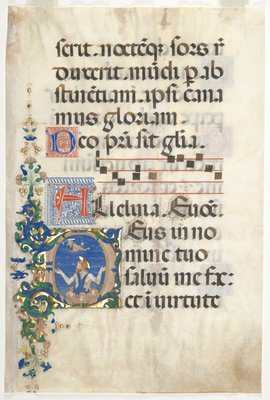 scrit. noctẽqꝫ sors
Duxerit. mũdi ꝑ ab
stinẽtiam. ipsi cana
mus gloriam.
Deo pri sit glia.
Alleluia.
Deus in no
mine tuo
saluũ me fac:
et i uirtute